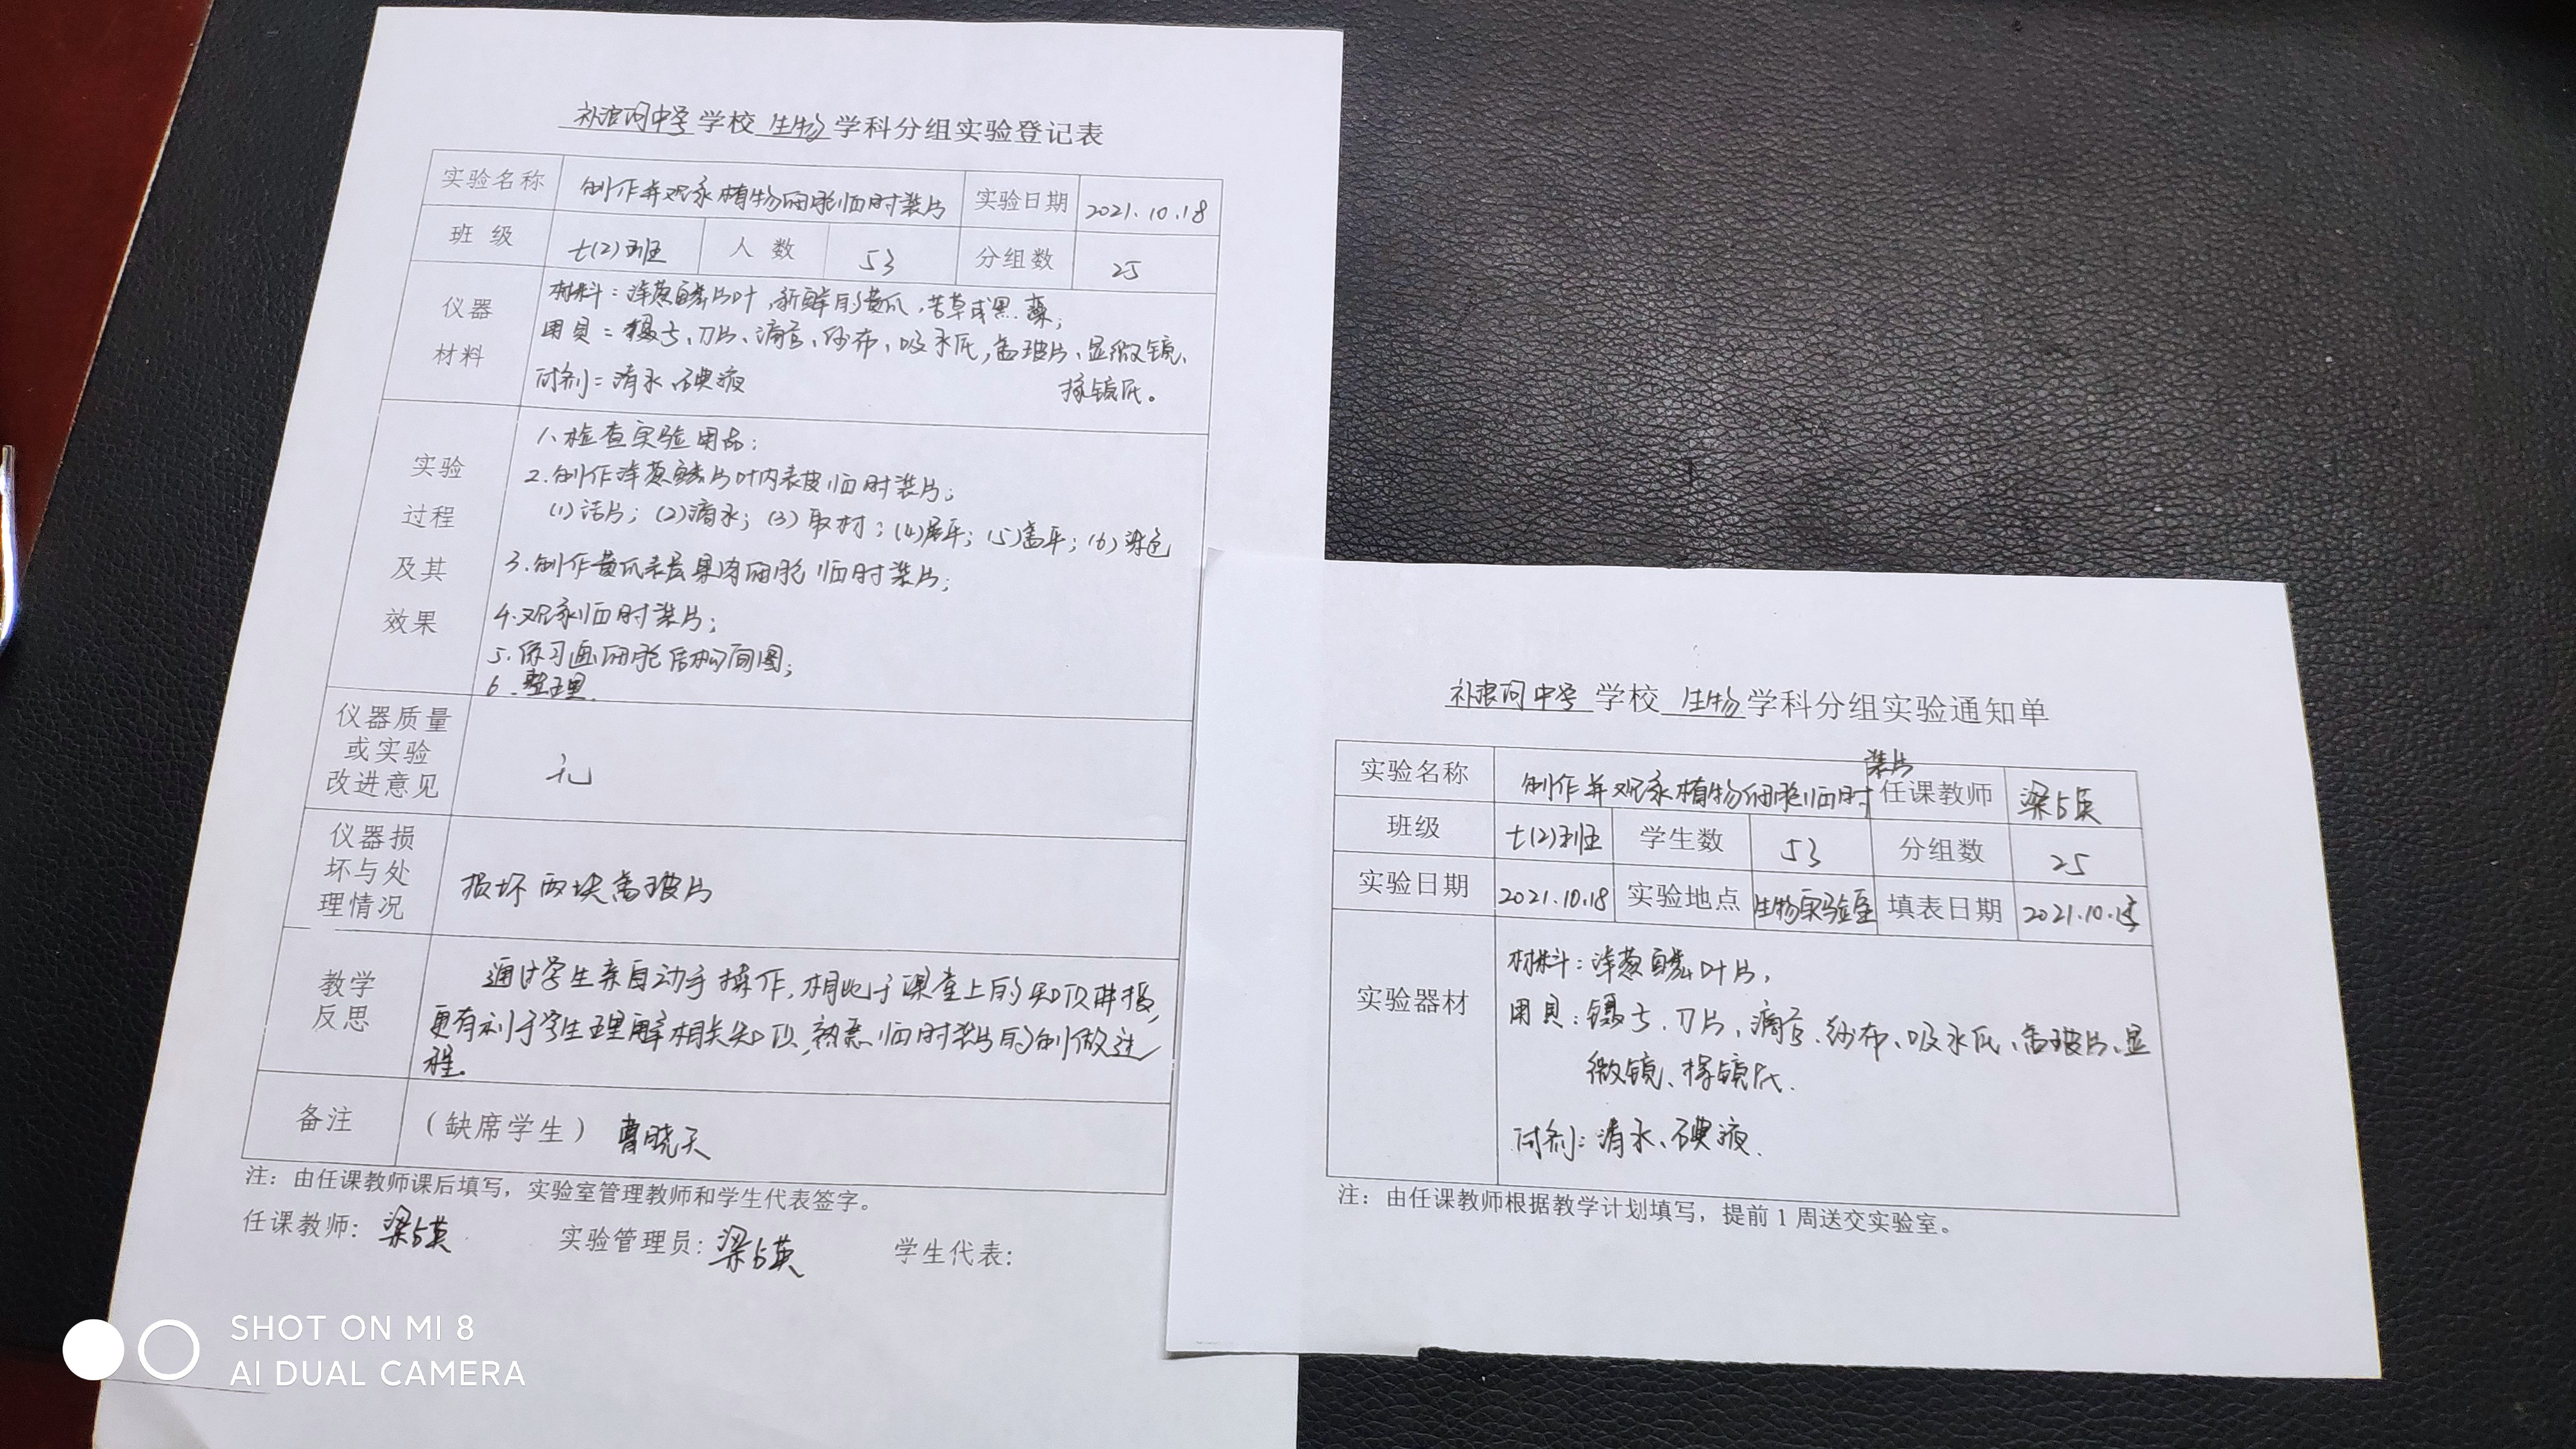 补浪河中学 学校 生物 学科分组实验登记表
实验名称 制作并观察植物细胞临时装片 实验日期 2021.10.18
班 级 七(2)班 人 数 53 分组数 25
仪器 材料
材料：洋葱鳞片叶，新鲜的黄瓜，苦草或黑藻；
用具：镊子、刀片、滴管、纱布、吸水纸，盖玻片、显微镜、
擦镜纸。
试剂：清水、碘液
实验 过程 及其 效果
1、检查实验用品；
2.制作洋葱鳞片叶内表皮临时装片；
(1)洁片；(2)滴水；(3)取材；(4)展平；(5)盖平；(6)染色
3.制作黄瓜表层果肉细胞临时装片；
4.观察临时装片；
5.练习画细胞结构简图；
6.整理.
仪器质量
或实验
改进意见
无
仪器损
坏与处
理情况
损坏两块盖玻片
教学
反思
通过学生亲自动手操作，相比于课堂上的知识讲授，
更有利于学生理解相关知识，熟悉临时装片的制做过
程.
备注 （缺席学生） 曹晓天
注：由任课教师课后填写，实验室管理教师和学生代表签字。
任课教师：梁占英 实验管理员：梁占英 学生代表：
SHOT ON MI 8
AI DUAL CAMERA
补浪河中学 学校 生物 学科分组实验通知单
实验名称 制作并观察植物细胞临时装片 任课教师 梁占英
班级 七(2)班 学生数 53 分组数 25
实验日期 2021.10.18 实验地点 生物实验室 填表日期 2021.10.15
实验器材
材料：洋葱鳞叶片，
用具：镊子、刀片、滴管、纱布、吸水纸、盖玻片、显
微镜、擦镜纸.
试剂：清水、碘液.
注：由任课教师根据教学计划填写，提前 1 周送交实验室。